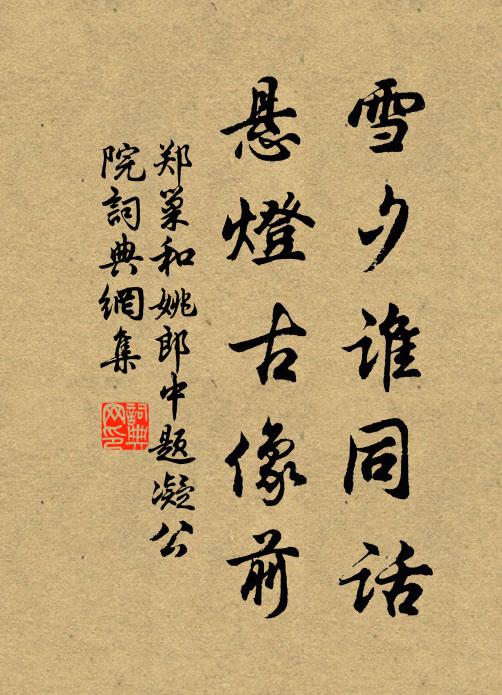 雪夕谁同话
悬燈古像前
郑巢和姚郎中题凝公
院詞典網集
詞典
网印